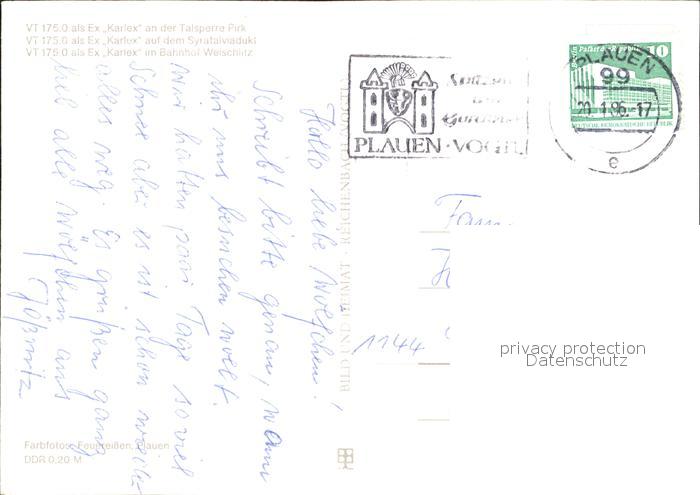 VT 175.0 als Ex „Karlex" an der Talsperre Pirk
VT 175.0 als Ex „Karlex" auf dem Syratalviadukt
VT 175.0 als Ex „Karlex" im Bahnhof Weischlitz
Hallo liebe
Schreibt bitte genau, wann
ihr uns besuchen wollt.
Wir hatten paar Tage so viel
Schnee aber es ist schon wieder
alles weg. Es grüßen ganz
lieb alle aus
Jößnitz
Farbfotos: Feuereißen, Plauen
DDR 0,20 M
BILD UND HEIMAT · REICHENBACH (VOGTL)
Spitzen
und
Gardinen
PLAUEN · VOGTL
PLAUEN
99
1.86-17
e
Palast d. Republik 10
DEUTSCHE DEMOKRATISCHE REPUBLIK
Fam
1144
privacy protection
Datenschutz